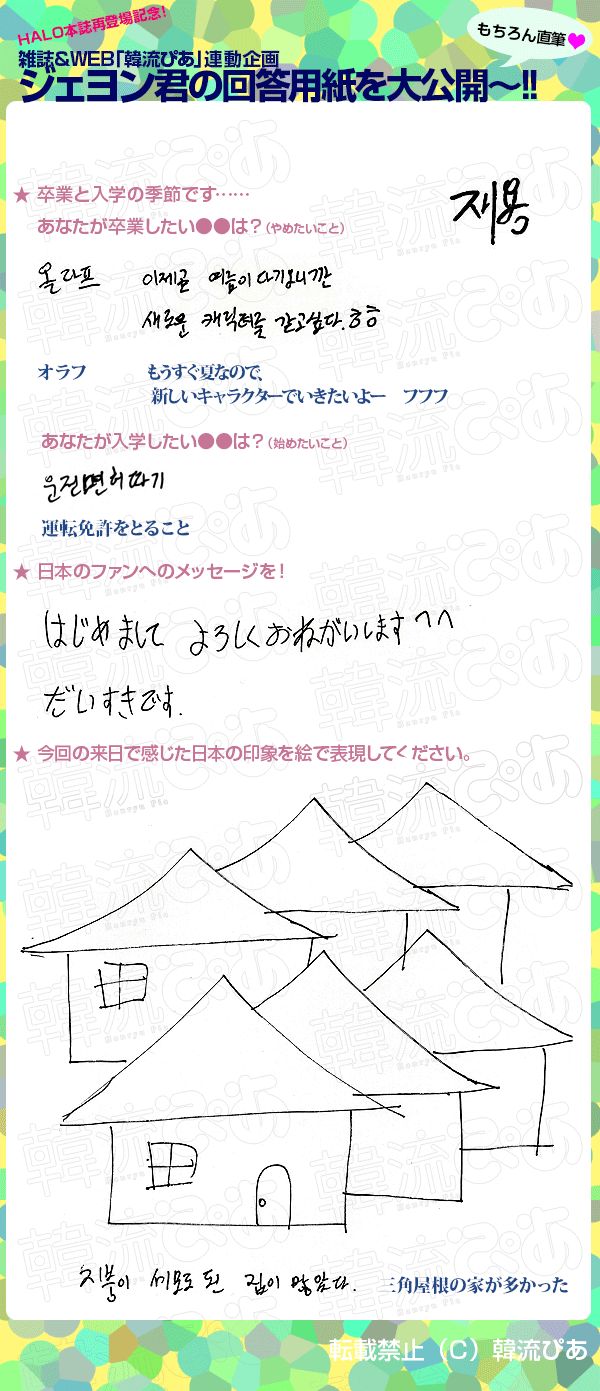 HALO本誌再登場記念!
もちろん直筆
雑誌&WEB「韓流ぴあ」連動企画
ジェヨン君の回答用紙を大公開〜!!
재용
★ 卒業と入学の季節です……
あなたが卒業したい●●は?(やめたいこと)
올라프 이제곧 여름이 다가오니깐
새로운 캐릭터를 갖고싶다.ㅎㅎ
オラフ もうすぐ夏なので、
新しいキャラクターでいきたいよー フフフ
あなたが入学したい●●は?(始めたいこと)
운전면허따기
運転免許をとること
★ 日本のファンへのメッセージを!
はじめまして よろしくおねがいします^^
だいすきです.
★ 今回の来日で感じた日本の印象を絵で表現してください。
지붕이 세모로 된 집이 많았다.
三角屋根の家が多かった
転載禁止(C)韓流ぴあ